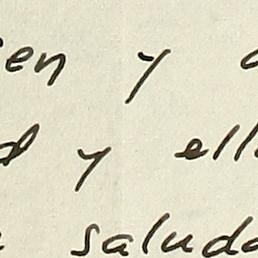 en y
d y ell
saluda